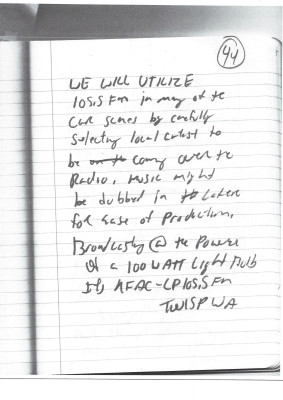 44
WE WILL UTILIZE
105.5 Fm in many of the
CAR scenes by carefully
Selecting local artist to
be on the coming over the
Radio. Music might
be dubbed in to Later
for ease of Production.
Broadcasting @ the Power
Of a 100 WATT Light Bulb
Its KFAC-LP 105.5 Fm
TWISP WA